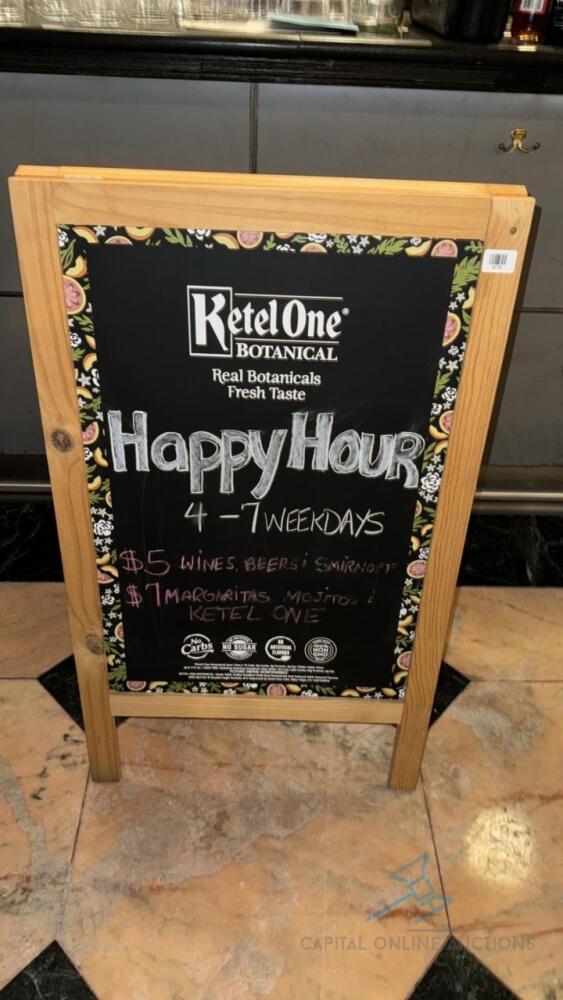 Ketel One®
BOTANICAL
Real Botanicals
Fresh Taste
Happy Hour
4 - 7 WEEKDAYS
$5 WINES, BEERS & SMIRNOFF
$7 MARGARITAS, MOJITOS &
KETEL ONE
No Carbs
NO SUGAR
NO ARTIFICIAL FLAVORS
100% NON GMO
CAPITAL ONLINE AUCTIONS